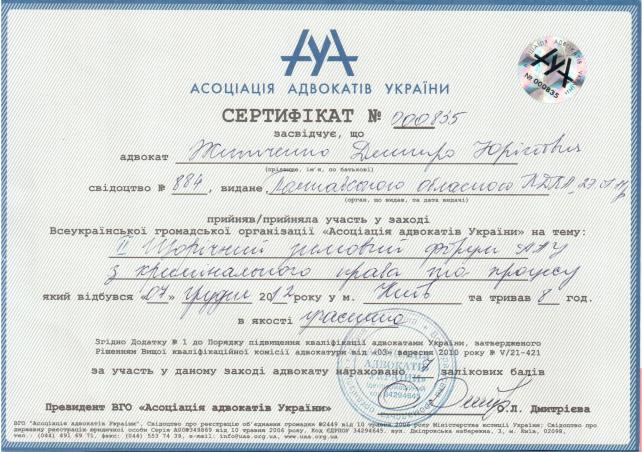 АУА
АСОЦІАЦІЯ АДВОКАТІВ УКРАЇНИ
АСОЦІАЦІЯ АДВОКАТІВ
АУА
№ 000835
СЕРТИФІКАТ № 000835
засвідчує, що
адвокат Житченко Дмитро Юрійович
(прізвище, ім'я, по батькові)
свідоцтво № 884, видане Полтавською обласною КДКА
(орган, що видав, та дата видачі)
прийняв/прийняла участь у заході
Всеукраїнської громадської організації «Асоціація адвокатів України» на тему:
II Щорічний зимовий форум ААУ
з кримінального права та процесу
який відбувся «07» грудня 2012 року у м. Київ та тривав 8 год.
в якості учасника
Згідно Додатку № 1 до Порядку підвищення кваліфікації адвокатами України, затвердженого
Рішенням Вищої кваліфікаційної комісії адвокатури від «03» вересня 2010 року № V/21-421
за участь у даному заході адвокату нараховано 7 залікових балів
АДВОКАТІВ
УКРАЇНИ
34294645
Президент ВГО «Асоціація адвокатів України» О.Л. Дмитрієва
ВГО "Асоціація адвокатів України". Свідоцтво про реєстрацію об'єднання громадян №2449 від 10 травня 2006 року Міністерства юстиції України; Свідоцтво про
державну реєстрацію юридичної особи Серія А00 №349869 від 10 травня 2006 року. Код ЄДРПОУ 34294645. вул. Дніпровська набережна, 3, м. Київ, 02098,
тел. (044) 491 69 71, факс: (044) 553 74 39, e-mail: info@uaa.org.ua, www.uaa.org.ua